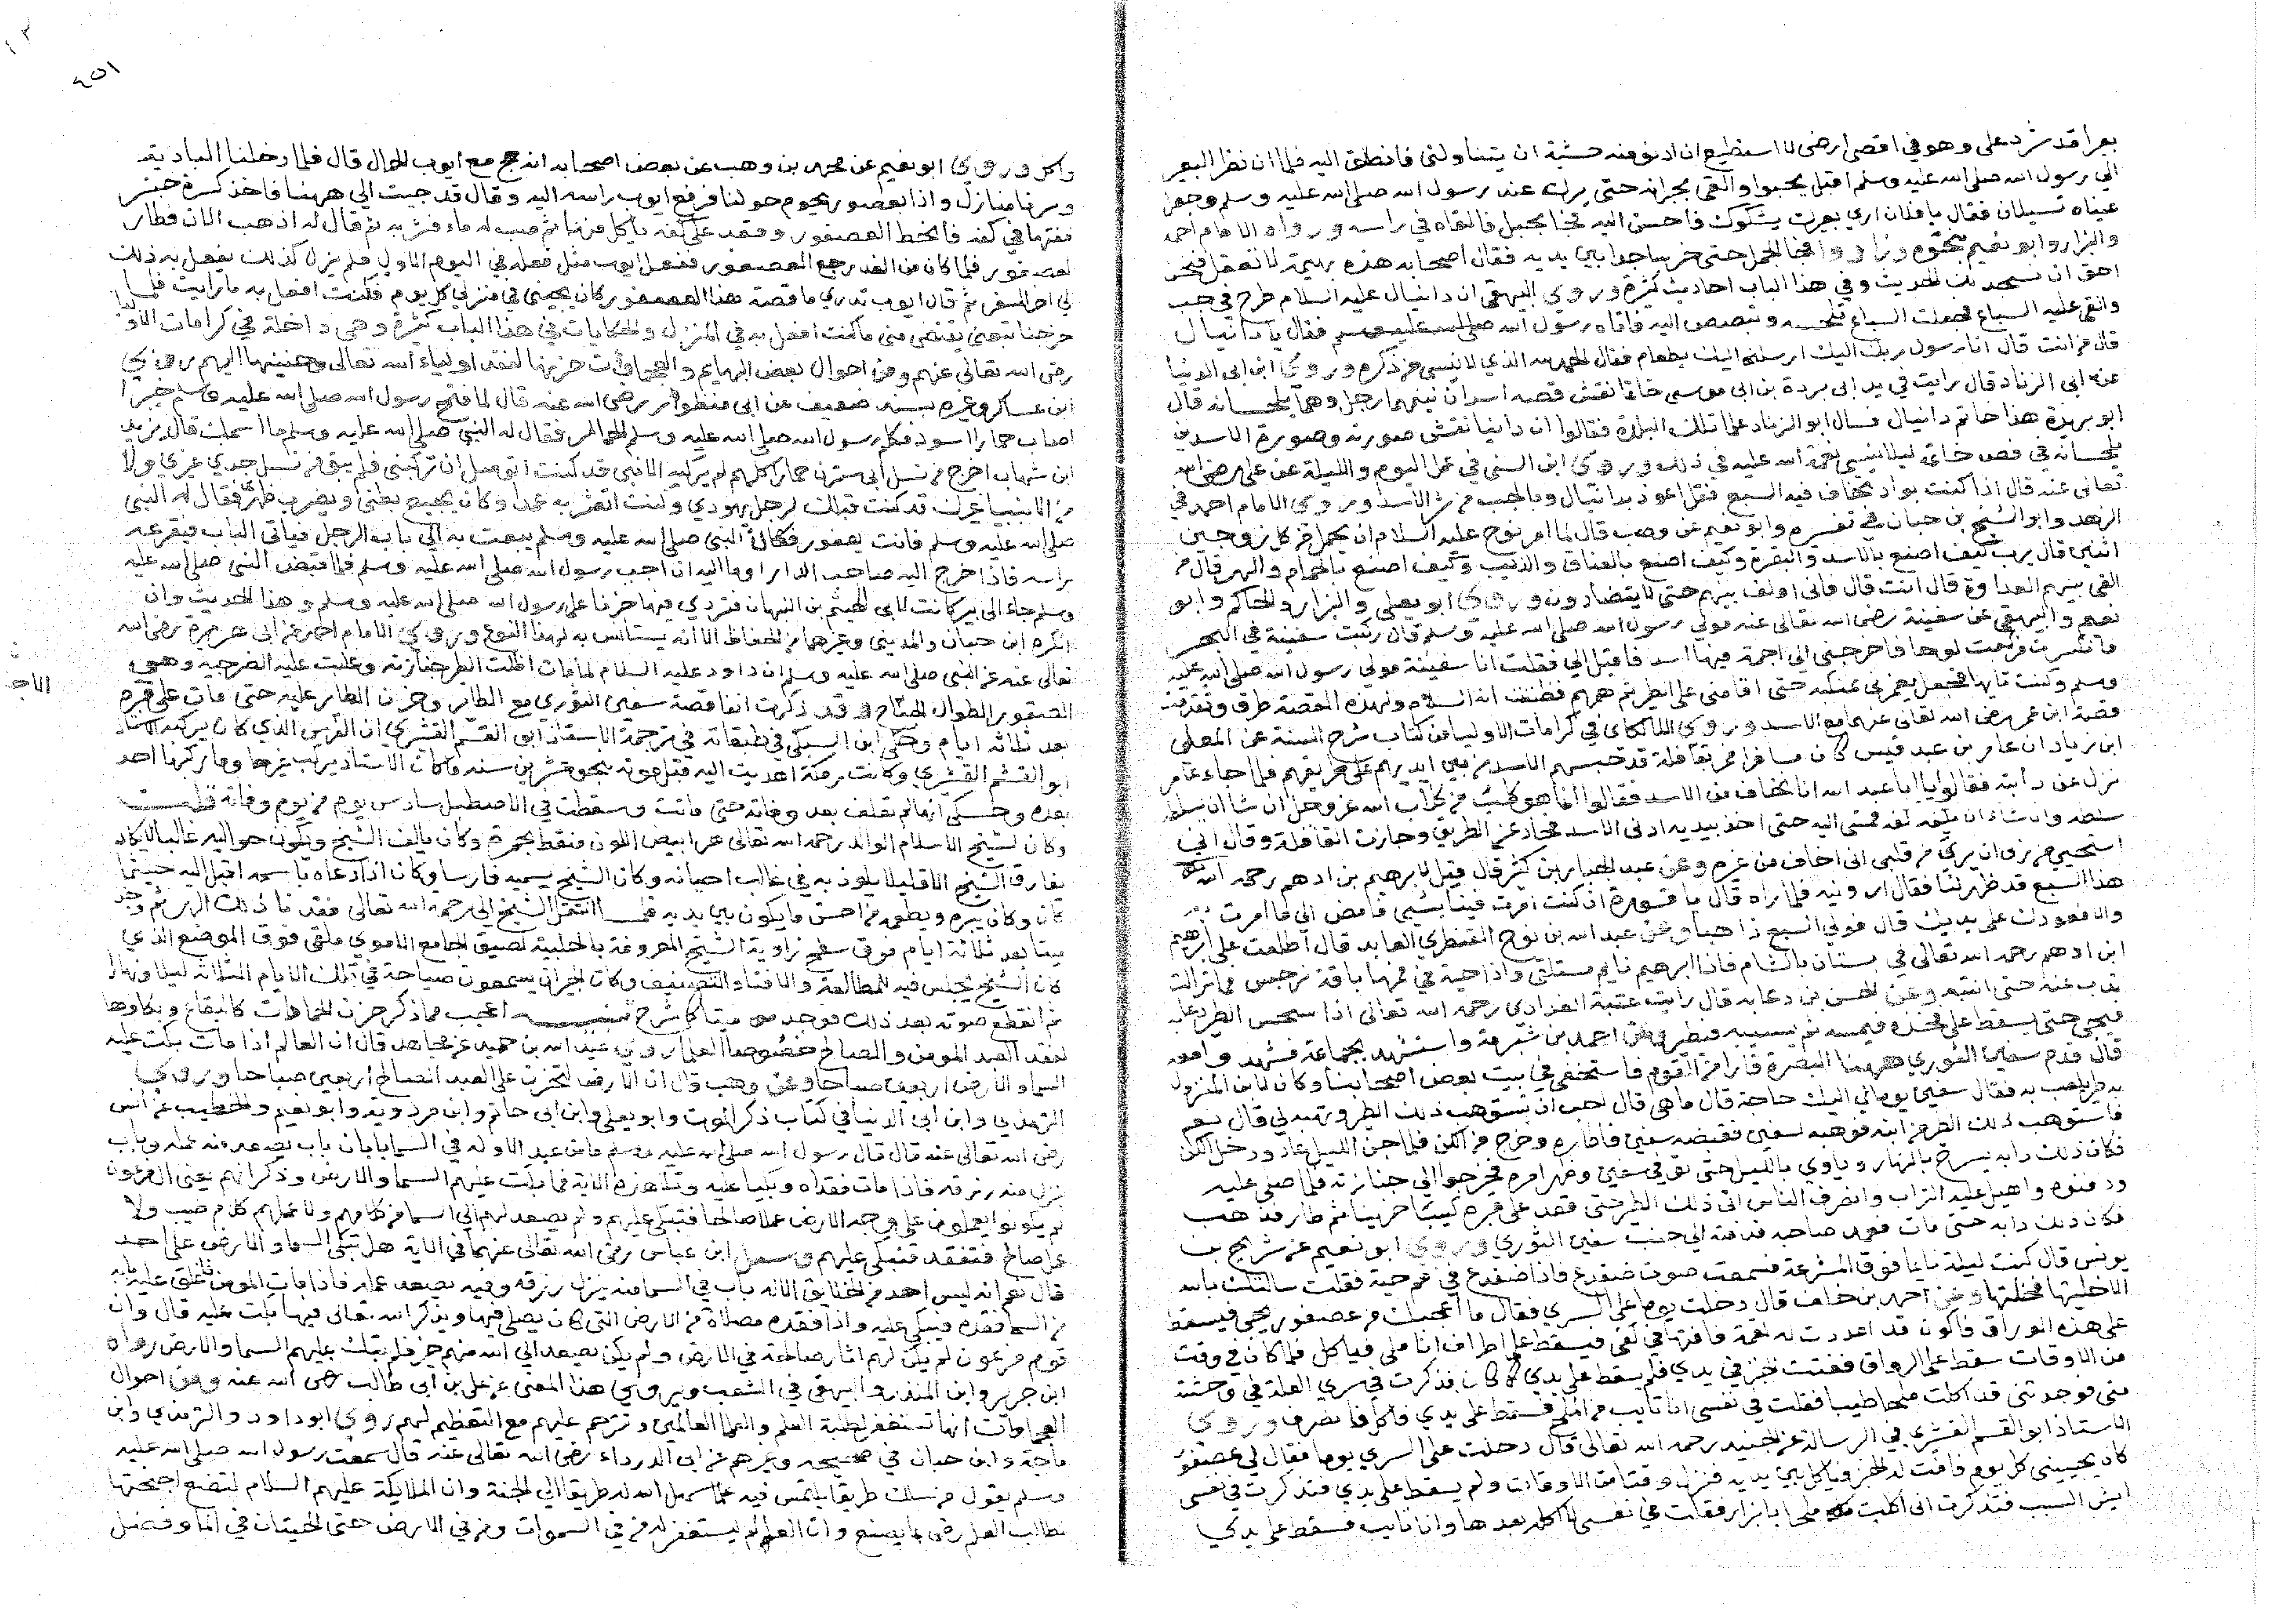 بعيرا قد شرد على وهو في اقصى ارضى لا استطيع ان ادنو منه خشية ان يتناولنى فانطلق اليه فلما ان نظر البعير
الى رسول الله صلى الله عليه وسلم اقبل يحبوا والقى بجرانه حتى برك عند رسول الله صلى الله عليه وسلم وجعل
عيناه تسيلان فقال يا فلان ارى بعيرك يشكوك فاحسن اليه فجا بحبل فالقاه في راسه ورواه الامام احمد
والبزار وابو نعيم بنحوه وزادوا فجا الجمل حتى خر ساجدا بين يديه فقال اصحابه هذه بهيمة لا تعقل فنحن
احق ان نسجد لك الحديث وفي هذا الباب احاديث كثيرة وروى البيهقى ان دانيال عليه السلام طرح في جب
والقى عليه السباع فجعلت السباع تلحسه وتبصبص اليه فاتاه رسول فقال يا دانيال
قال من انت قال انا رسول ربك اليك ارسلنى اليك بطعام فقال الحمد لله الذي لا ينسى من ذكره وروى ابن ابى الدنيا
عن ابى الزناد قال رايت في يد ابى بردة بن ابى موسى خاتما نقش فصه اسدان بينهما رجل وهما يلحسانه قال
ابو بردة هذا خاتم دانيال فسال ابو الزناد علما تلك البلدة فقالوا ان دانيا نقش صورته وصورة الاسدين
يلحسانه في فص خاتمه ليلا ينسى نعمة الله عليه في ذلك وروى ابن السنى في عمل اليوم والليلة عن على رضى الله
تعالى عنه قال اذا كنت بواد تخاف فيه السبع فقل اعوذ بدانيال وبالجب من شر الاسد وروى الامام احمد في
الزهد وابو الشيخ بن حبان في تفسيره وابو نعيم عن وهب قال لما امر نوح عليه السلام ان يحمل من كل زوجين
اثنين قال يرب كيف اصنع بالاسد والبقرة وكيف اصنع بالعناق والذيب وكيف اصنع بالحمام والهر قال من
القى بينهم العداوة قال انت قال فانى اولف بينهم حتى لا يتضادون وروى ابو يعلى والبزار والحاكم وابو
نعيم والبيهقى عن سفينة رضى الله تعالى عنه مولى رسول الله صلى الله عليه وسلم قال ركبت سفينة في البحر
فانكسرت فركبت لوحا فاخرجنى الى اجمة فيها اسد فاقبل الى فقلت انا سفينة مولى رسول الله صلى الله عليه
وسلم وكنت تايها فجعل يغمزنى بمنكبه حتى اقامنى على الطريق ثم همهم فظننت انه السلام ولهذه القصة طرق وتقدمت
قصة ابن عمر رضى الله تعالى عنهما مع الاسد وروى اللالكاى في كرامات الاوليا من كتاب شرح السنة عن المعلى
ابن زياد ان عامر بن عبد قيس كان مسافرا فمر بقافلة قد حبسهم الاسد من بين ايديهم على طريقهم فلما جاء عامر
نزل عن دابته فقالوا يا ابا عبد الله انا نخاف من الاسد فقالوا انما هو كلب من كلاب الله عز وجل ان شا ان سلطه
سلطه وان شاء ان يكفه كفه فمشى اليه حتى اخذ بيديه اذنى الاسد فنحاه عن الطريق وجازت القافلة وقال انى
استحيي من ربى ان يرى من قلبى انى اخاف من غيره وعن عبد الجبار بن كثير قال قيل لابرهيم بن ادهم رحمه الله
هذا السبع قد ظهر لنا فقال ارونيه فلما راه قال يا قسورة ان كنت امرت فينا بشيى فامض الى ما امرت
والا فعودك على بديك قال فولى السبع ذاهبا وعن عبد الله بن نوح القنطرى العابد قال اطلعت على ابرهيم
ابن ادهم رحمه الله تعالى في بستان بالشام فاذا ابرهيم نايم مستلقى واذا حية في فمها باقة نرجس فما زالت
تذب عنه حتى انتبه وعن الحسن بن دعابه قال رايت عتبة الغلام رحمه الله تعالى اذا
فيجى حتى يسقط على فخذه فيمسه ثم يسيبه فيطير وعن احمد بن شبرمة واستشهد بجماعة فشهدوا معه
قال قدم سفين الثورى ههنا البصرة فارا من القوم فاستخفى في بيت بعض اصحابنا وكان لابن المنزل
به طير يلعب به فقال سفين يوما لى اليك حاجة قال ما هى قال احب ان تستوهب ذلك الطير وتهبه لى قال نعم
فاستوهب ذلك الطير من ابنه فوهبه لسفين فقبضه سفين فاطاره وخرج من الكن فلما جن الليل عاد ودخل الكن
فكان ذلك دابه يسرح بالنهار وياوى بالليل حتى توفى سفين وظهر امره فخرجوا الى جنازته فلما صلى عليه
ودفنوه واهيل عليه التراب وانصرف الناس اتى ذلك الطير حتى قعد على قبره كئيبا حزينا ثم طار فذهب
فكان ذلك دابه حتى مات فعهد صاحبه فدفنه الى جنب سفين الثورى وروى ابو نعيم عن شريح بن
يونس قال كنت ليلة نايما فوق المشرعة فسمعت صوت ضفدع فاذا ضفدع في فم حية فقلت سالتك بالله
الا خليتها فخلتها وعن احمد بن خلف قال دخلت يوما على السرى فقال ما اعجبك من عصفور يجى فيسقط
على هذه الوراق فاكون قد اعددت له لقمة فافتها في كفى فيسقط على اطراف اناملى فياكل فلما كان في وقت
من الاوقات سقط على الرواق ففتت الخبز في يدى فلم يسقط على يدى كما كان ففكرت في سرى العلة في وحشته
منى فوجدتنى قد اكلت ملحا طيبا فقلت في نفسى انا تايب من الملح فسقط على يدى فاكل فانصرف وروى
الاستاذ ابو القسم القشيرى في الرسالة عن الجنيد رحمه الله تعالى قال دخلت على السرى يوما فقال لى عصفور
كان يجيينى كل يوم فافت له الخبز فياكل بين يديه فنزل وقتا من الاوقات ولم يسقط على يدى فتذكرت في نفسى
ايش السبب فتذكرت انى اكلت ملحا بابزار فقلت في نفسى لا اكله بعدها وانا تايب فسقط على يدى
٤٥١
واكل وروى ابو نعيم عن محمد بن وهب عن بعض اصحابه انه حج مع ايوب الحمال قال فلما دخلنا البادية
وسرنا منازل واذا بعصفور يحوم حولنا فرفع ايوب راسه اليه وقال قد جيت الى ههنا فاخذ كسرة خبز
ففتها في كفه فانحط العصفور وقعد على كفه ياكل منها ثم صب له ماء فشربه ثم قال له اذهب الان فطار
العصفور فلما كان من الغد رجع العصفور ففعل ايوب مثل فعله في اليوم الاول فلم يزل كذلك يفعل به ذلك
الى اخر السفر ثم قال ايوب تدرى ما قصة هذا العصفور كان يجينى في منزلى كل يوم فكنت افعل به ما رايت فلما
خرجنا تبعنى يقتضى منى ما كنت افعل به في المنزل والحكايات في هذا الباب كثيرة وهى داخلة في كرامات الاوليا
رضى الله تعالى عنهم ومن احوال بعض البهايم والعجماوات حزنها لفقد اولياء الله تعالى وحنينها اليهم روى
ابن عساكر وغيره بسند ضعيف عن ابى منظور رضى الله عنه قال لما فتح رسول الله صلى الله عليه وسلم خيبرا
اصاب حمارا اسود فكلم رسول الله صلى الله عليه وسلم الحمار فقال له النبي صلى الله عليه وسلم ما اسمك قال يزيد
ابن شهاب اخرج من نسل ابى ستين حمارا كلهم لم يركبه الا نبى قد كنت اتوصل ان تركبنى فلم يبق من نسل جدى غيرى ولا
من الانبيا غيرك قد كنت قبلك لرجل يهودى وكنت اتعثر به عمدا وكان يجيع بطنى ويضرب ظهرى فقال له النبى
صلى الله عليه وسلم فانت يعفور فكان النبى صلى الله عليه وسلم يبعث به الى باب الرجل فياتى الباب فيقرعه
براسه فاذا خرج اليه صاحب الدار اوما اليه ان اجب رسول الله صلى الله عليه وسلم فلما قبض النبى صلى الله عليه
وسلم جاء الى بير كانت لابى الهيثم بن التيهان فتردى فيها حزنا على رسول الله صلى الله عليه وسلم وهذا الحديث وان
انكره ابن حبان والمدينى وغيرهما من الحفاظ الا انه يستانس به لهذا النوع وروى الامام احمد عن ابى هريرة رضى الله
تعالى عنه عن النبى صلى الله عليه وسلم ان داود عليه السلام لما مات اظلت الطير جنازته وغلبت عليه المضرحيه وهى
الصقور الطوال الجناح وقد ذكرت انفا قصة سفين الثورى مع الطائر وحزن الطائر عليه حتى مات على قبره
بعد ثلاثه ايام وحكى ابن السبكى في طبقاته في ترجمة الاستاذ ابى القسم القشيرى ان الفرس الذى كان يركبه الاستاذ
ابو القسم القشيرى وكانت رمكة اهديت اليه قبل موته بنحو عشرين سنه ما كان الاستاذ يركب غيرها وما ركبها احد
بعده وحكى انها لم تعلف بعد وفاته حتى ماتت وسقطت في الاصطبل سادس يوم من يوم وفاته قلت
وكان لشيخ الاسلام الوالد رحمه الله تعالى هر ابيض اللون منقط بحمرة وكان يالف الشيخ ويكون حواليه غالبا لا يكاد
يفارق الشيخ الا قليلا يلوذ به في غالب احيانه وكان الشيخ يسميه فارسا وكان اذا دعاه باسمه اقبل اليه حيثما
كان وكان يبره ويطعمه من احسن ما يكون بين يديه فلما انتقل الشيخ الى رحمة الله تعالى فقدنا ذلك الهر ثم وجد
ميتا بعد ثلاثة ايام فوق سطح زاوية الشيخ المعروفة بالحلبية لصيق الجامع الاموى ملقى فوق الموضع الذى
كان الشيخ يجلس فيه للمطالعة والافتاء والتصنيف وكان الجيران يسمعون صياحه في تلك الايام الثلاثه ليلا ونهارا
ثم انقطع صوته بعد ذلك فوجد ميتا كما شرح تنبيه اعجب مما ذكر حزن الجمادات كالبقاع وبكاوها
لفقد العبد المومن والصالح خصوصا العلما روى عبد الله بن حميد عن مجاهد قال ان العالم اذا مات بكت عليه
السما والارض اربعين صباحا وعن وهب قال ان الارض لتحزن على العبد الصالح اربعين صباحا وروى
الترمذى وابن ابى الدنيا في كتاب ذكر الموت وابو يعلى وابن ابى حاتم وابن مردويه وابو نعيم والخطيب عن انس
رضى الله تعالى عنه قال قال رسول الله صلى الله عليه وسلم ما من عبد الا وله في السما بابان باب يصعد منه عمله وباب
ينزل منه رزقه فاذا مات فقداه وبكيا عليه وتلا هذه الاية فما بكت عليهم السما والارض وذكر انهم يعنى آل فرعون
لم يكونوا يعملون على وجه الارض عملا صالحا فتبكى عليهم ولم يصعد لهم الى السما من كلامهم ولا عملهم كلام طيب ولا
عمل صالح فتفقد فتبكى عليهم وسئل ابن عباس رضى الله تعالى عنهما في الاية هل تبكى السما والارض على احد
قال نعم انه ليس احد من الخلايق الا له باب في السما منه ينزل رزقه وفيه يصعد عمله فاذا مات المومن فاغلق عليه بابه
من السما فقده فيبكى عليه واذا فقده مصلاه من الارض التى كان يصلى فيها ويذكر الله تعالى فيها بكت عليه قال وان
قوم فرعون لم يكن لهم اثار صالحة في الارض ولم يكن يصعد الى الله منهم خير فلم تبك عليهم السما والارض رواه
ابن جرير وابن المنذر والبيهقى في الشعب ويروى هذا المعنى عن على بن ابى طالب رضى الله عنه ومن احوال
العجماوات انها تستغفر لطلبة العلم والعلما العالمين وتترحم عليهم مع التعظيم لهم روى ابو داود والترمذى وابن
ماجة وابن حبان في صحيحه وغيرهم عن ابى الدرداء رضى الله تعالى عنه قال سمعت رسول الله صلى الله عليه
وسلم يقول من سلك طريقا يلتمس فيه علما سهل الله له طريقا الى الجنة وان الملايكة عليهم السلام لتضع اجنحتها
لطالب العلم رضى بما يصنع وان العالم ليستغفر له من في السموات ومن في الارض حتى الحيتان في الما وفضل